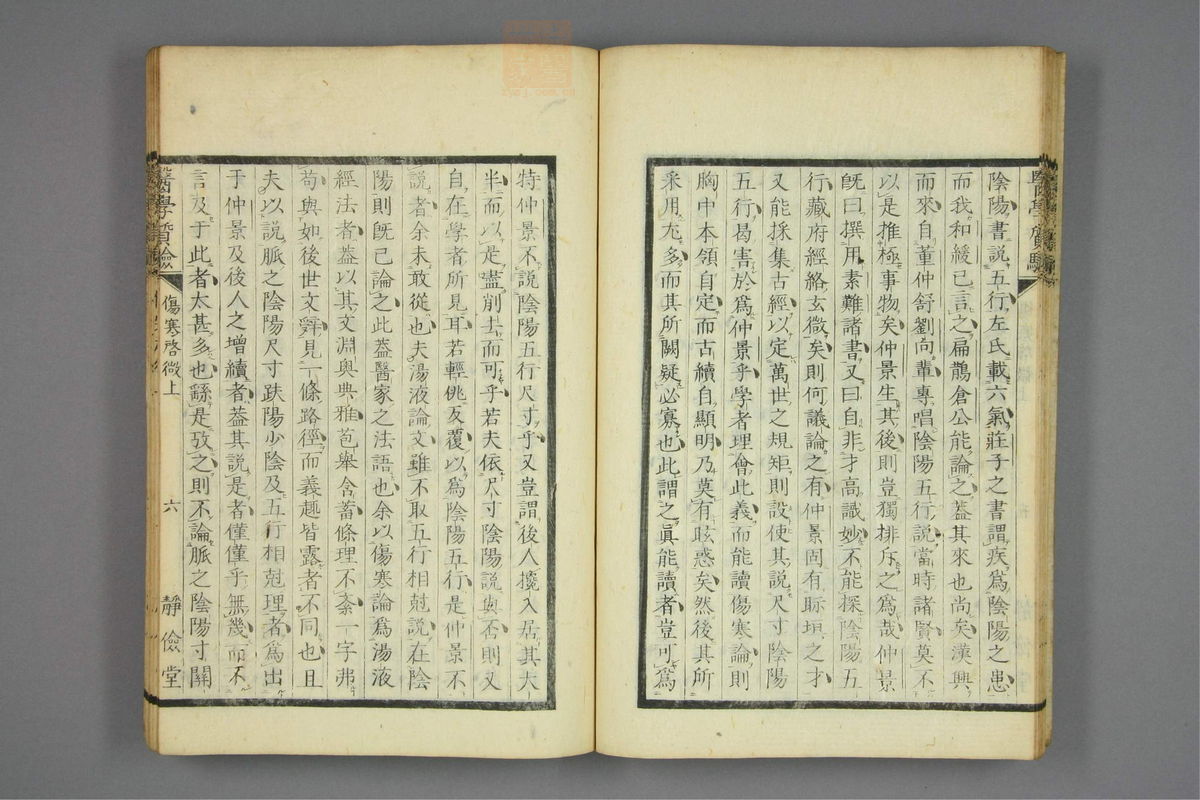 陰陽書說五行左氏載六氣莊子之書謂疾爲陰陽之患
而我和緩已言之扁鵲倉公能論之蓋其來也尚矣漢興
而來自董仲舒劉向輩專唱陰陽五行說當時諸賢莫不
以是推極事物矣仲景生其後則豈獨排斥之爲哉仲景
既曰撰用素難諸書又曰自非才高識妙不能探陰陽五
行藏府經絡玄微矣則何議論之有仲景固有眎垣之才
又能採集古經以定萬世之規矩則設使其說尺寸陰陽
五行曷害於爲仲景乎學者理會此義而能讀傷寒論則
胸中本領自定而古續自顯明乃莫有眩惑矣然後其所
釆用尤多而其所闕疑必寡也此謂之眞能讀者豈可爲
特仲景不說陰陽五行尺寸乎又豈謂後人攙入居其大
半而以是盡削去而可乎若夫依尺寸陰陽說與否則又
自在學者所見耳若輕佻反覆以爲陰陽五行是仲景不
說者余未敢從也夫湯液論文雖不取五行相尅說在陰
陽則既已論之此蓋醫家之法語也余以傷寒論爲湯液
經法者蓋以其文淵奥典雅苞舉含蓄條理不紊一字弗
苟與如後世文辭見一條路徑而義趣皆露者不同也且
夫以說脈之陰陽尺寸趺陽少陰及五行相尅理者爲出
于仲景及後人之增續者蓋其說是者僅僅乎無幾而不
言及于此者太甚多也繇是攷之則不論脈之陰陽寸關
醫學質驗
傷寒啓微上
六
靜儉堂